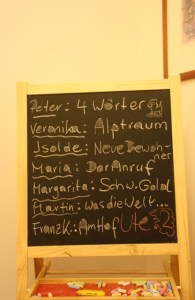 Peter: 4 Wörter
Veronika: Alptraum
Isolde: Neue Bewohner
Maria: Der Anruf
Margarita: Schw. Gold
Martin: was die Welt...
Franz K.: Am Hof Ute